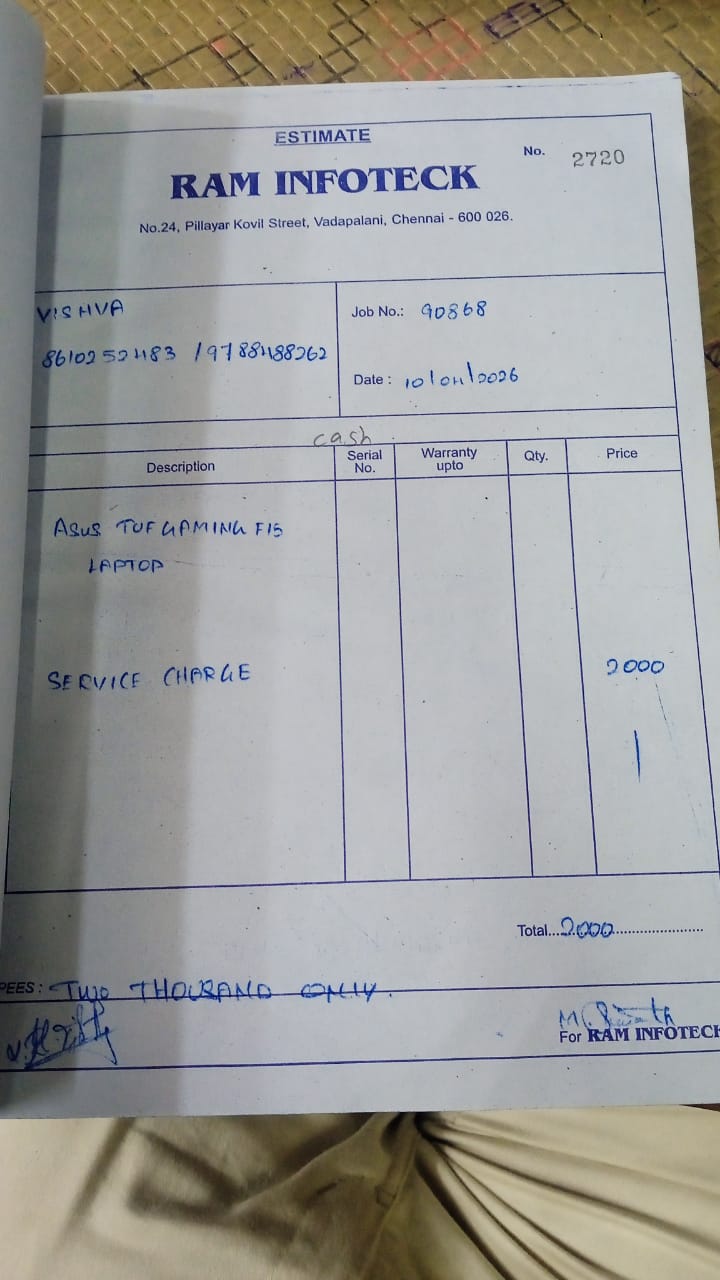 ESTIMATE
No. 2720
RAM INFOTECK
No.24, Pillayar Kovil Street, Vadapalani, Chennai - 600 026.
VISHVA
Job No.: 90868
8610252483 / 9788488262
Date : 10/04/2026
cash
Description Serial No. Warranty upto Qty. Price
ASUS TUF GAMING F15
LAPTOP
SERVICE CHARGE 2000
Total...2000......................
PEES : TWO THOUSAND ONLY.
For RAM INFOTECK